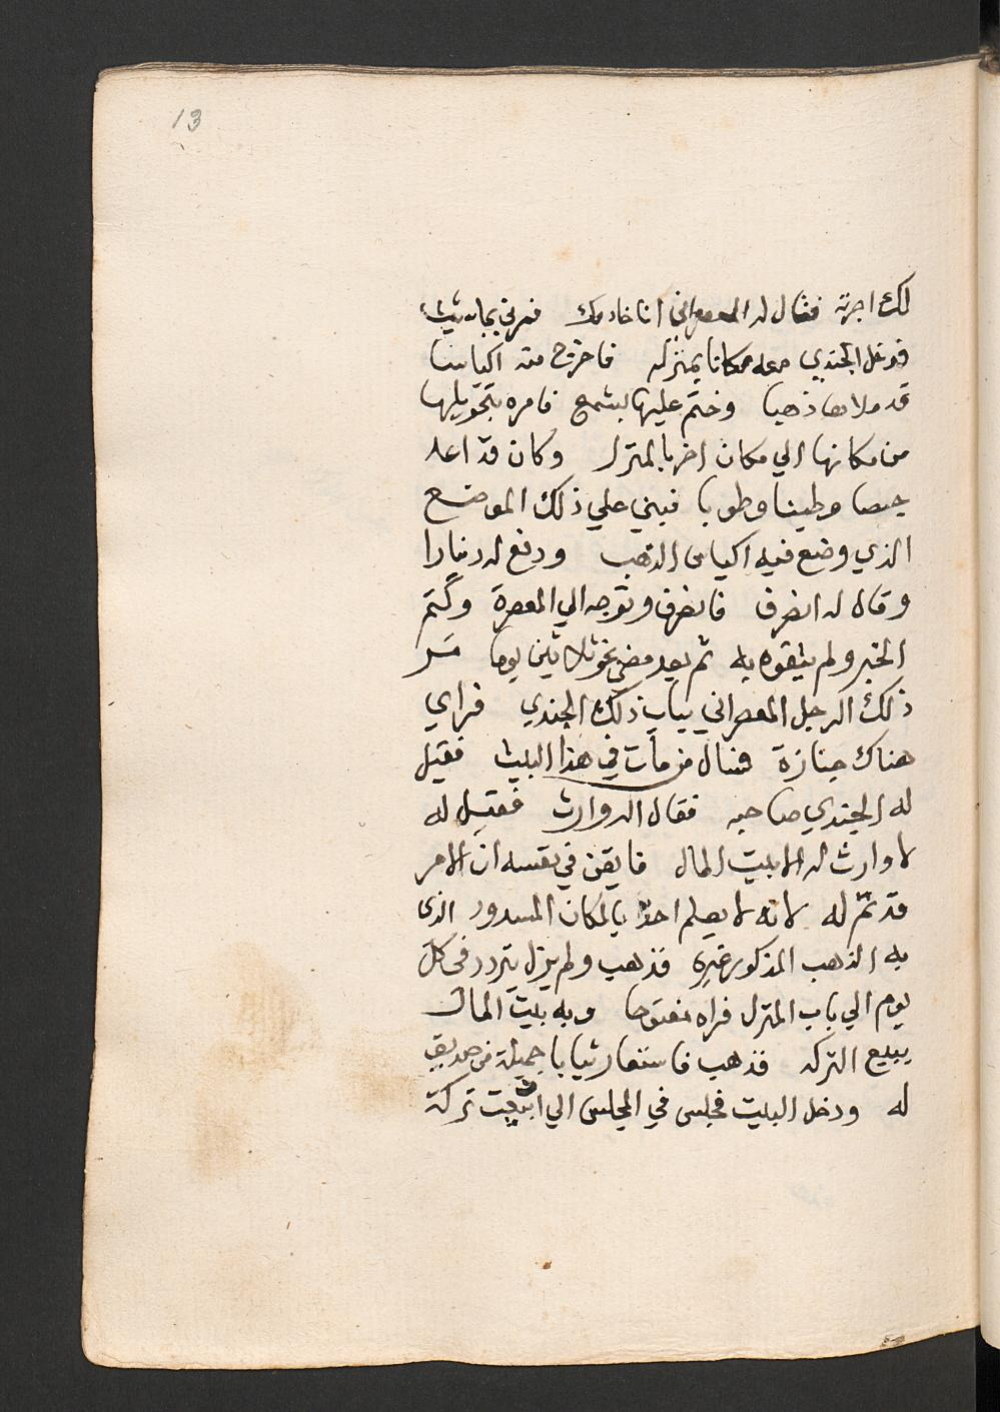 13
لك اجرته فقال له المعصراني انا خادمك فمرني بما شيت
فدخل الجندي معه مكانا بمنزله فاخرج منه اكياسا
قد ملاها ذهبا وختم عليها بشمع فامره بتحويلها
من مكانها الي مكان اخر بالمنزل وكان قد اعد
جبصا وطينا وطوبا فبني علي ذلك الموضع
الذي وضع فيه اكياس الذهب ودفع له دينارا
وقال له انصرف فانصرف وتوجه الي المعصرة وكتم
الخبر ولم يتفوه به ثم بعد مضي نحو ثلاثين يوما مر
ذلك الرجل المعصراني بباب ذلك الجندي فراي
هناك جنازة فسال من مات في هذا البيت فقيل
له الجندي صاحبه فقال اله وارث فقيل له
لا وارث له الا بيت المال فايقن في نفسه ان الامر
قد تم له لانه لا يعلم احدا بالمكان المسدود الذي
به الذهب المذكور غيره فذهب ولم يزل يتردد في كل
يوم الي باب المنزل فراه مفتوحا وبه بيت المال
يبيع التركه فذهب فاستعار ثيابا جميلة من صديق
له ودخل البيت فجلس في المجلس الي ان بيعت تركة